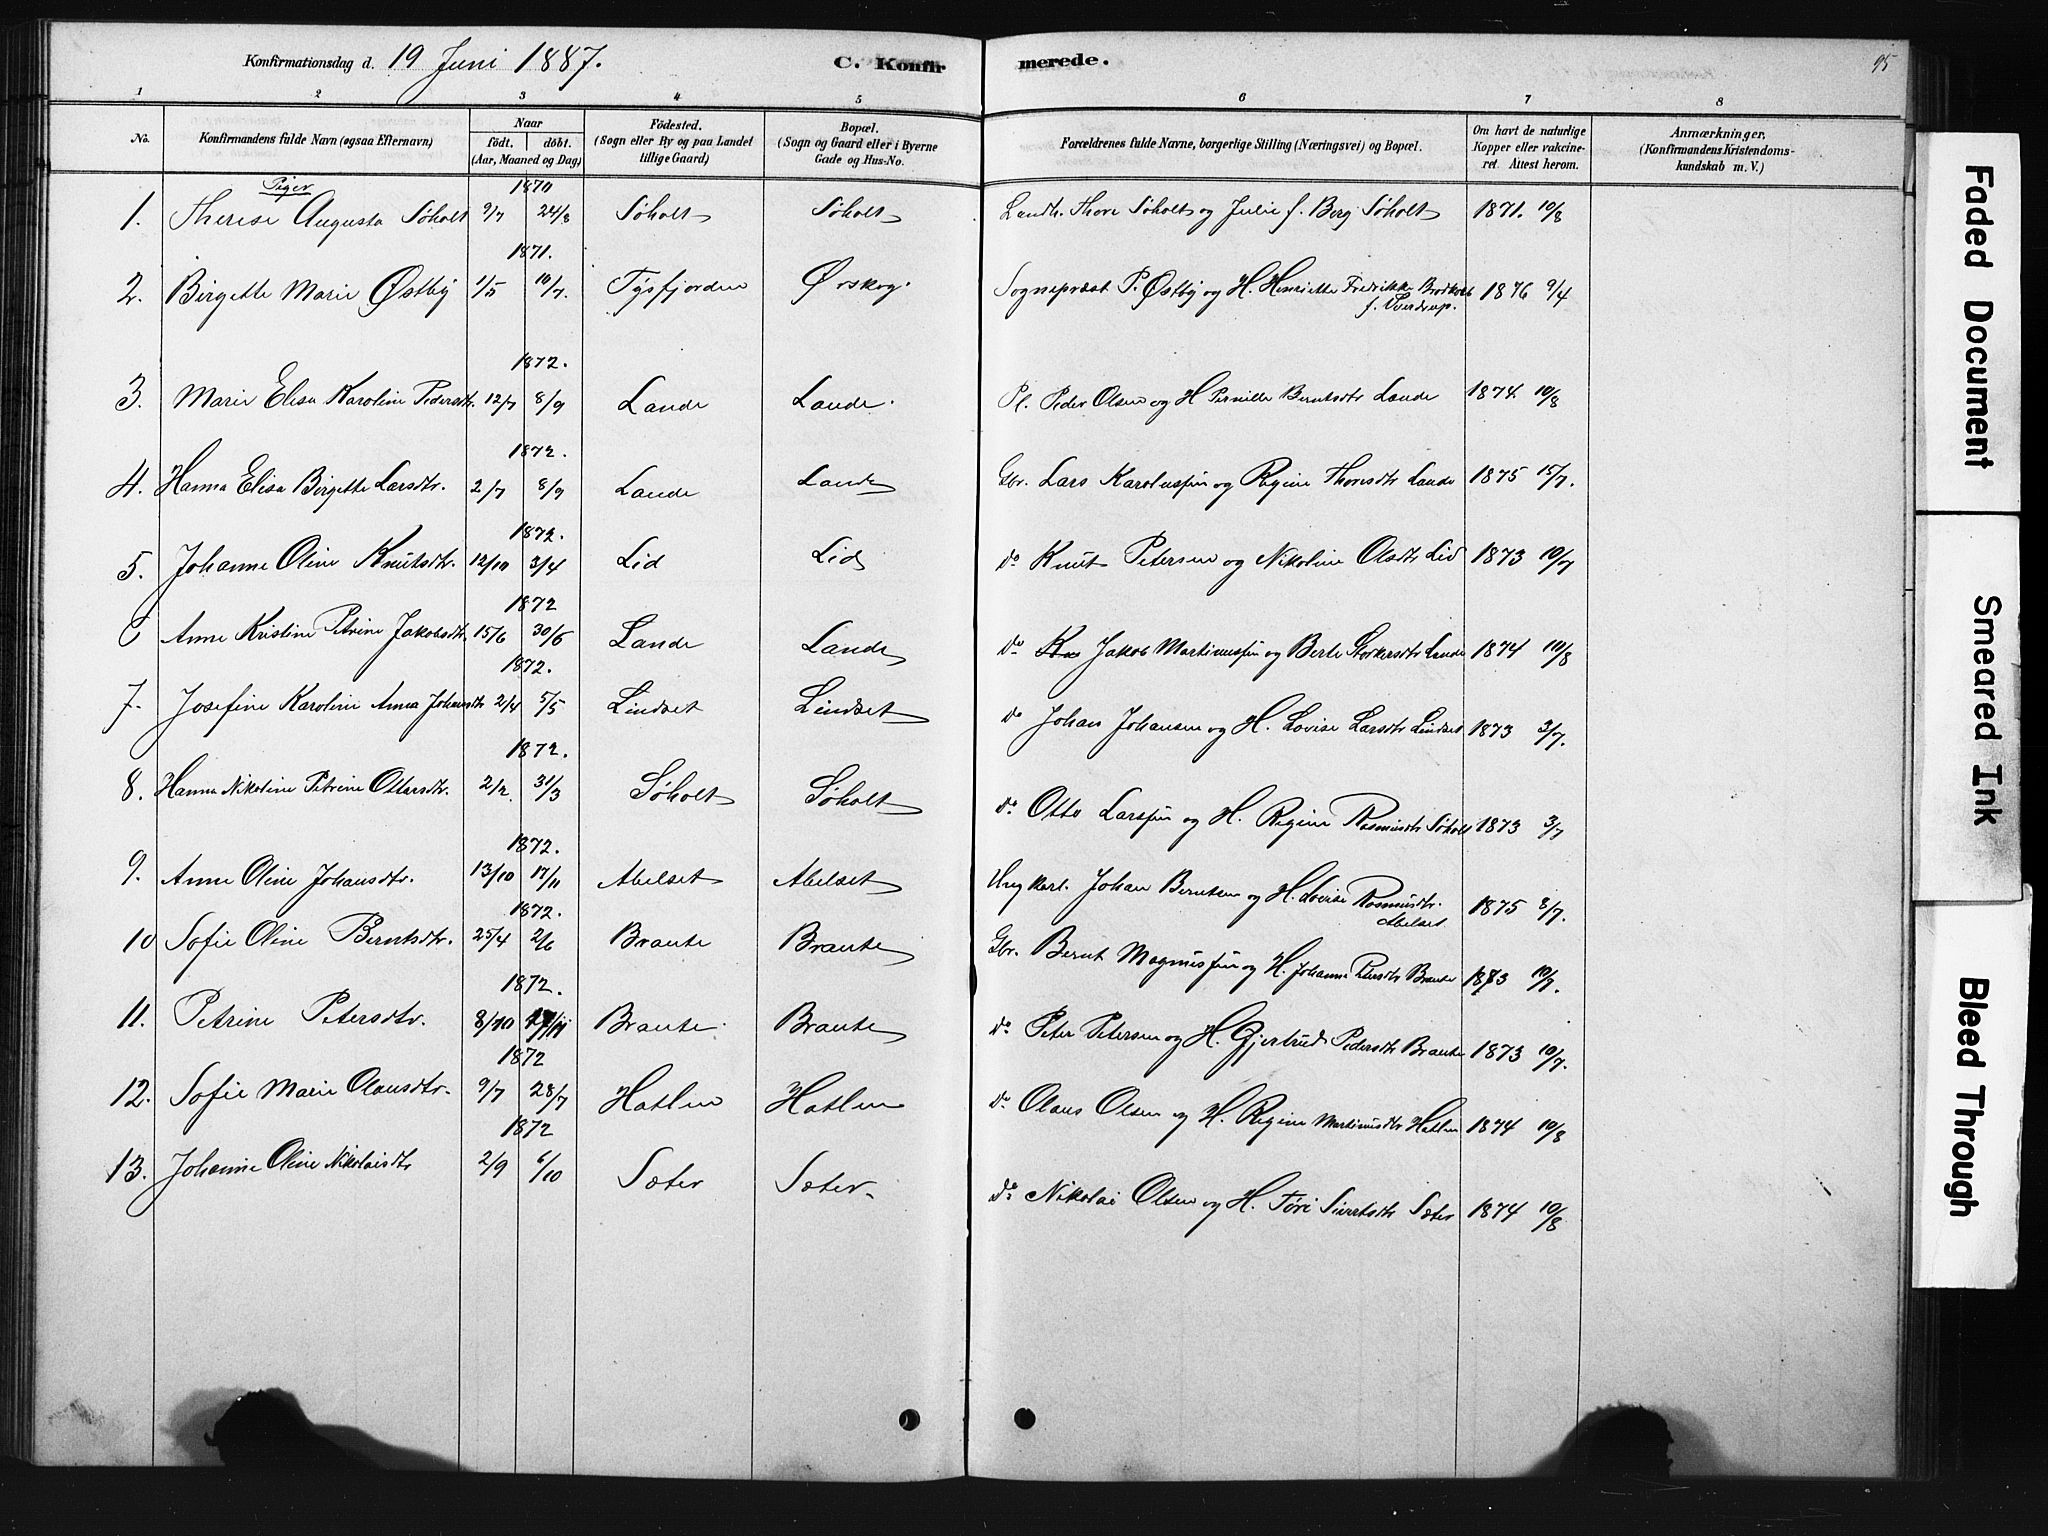 Konfirmationsdag d. 19 Juni 1887. C. Konfirmerede. 95
1 2 3 4 5 6 7 8
No. Konfirmandens fulde Navn (ogsaa Efternavn) Naar født. døbt. (Aar, Maaned og Dag) Fødested. (Sogn eller By og paa Landet tillige Gaard) Bopæl. (Sogn og Gaard eller i Byerne Gade og Hus-No. Forældrenes fulde Navne, borgerlige Stilling (Næringsvei) og Bopæl. Om havt de naturlige Kopper eller vakcineret. Attest herom. Anmærkninger. (Konfirmandens Kristendomskundskab m. V.)
Piger 1870
1. Therese Augusta Søholt 9/7 24/8 Søholt Søholt Landh. Thore Søholt og Julie f. Berg Søholt 1871. 10/8
1871.
2. Birgette Marie Østby 1/5 10/7. Tysfjorden Ørskog. Sognepræst P. Østby og H. Henriette Fredrikke f. Sverdrup. 1876 9/4
1872.
3. Marie Elisa Karoline Pedersdtr. 12/7 8/9 Lande Lande. Pl. Peder Olsen og H Pernille Berntsdtr Lande 1874. 10/8
1872.
4. Hanna Elisa Birgette Larsdtr. 2/7 8/9 Lande Lande Gbr. Lars Karolussen og Regine Thoresdtr Lande 1875 15/7.
1872.
5. Johanne Oline Knutsdtr. 12/10 3/4 Lid Lid do Knut Petersen og Nikoline Olsdtr Lid 1873 10/7
1872
6 Anne Kristine Petrine Jakobsdtr. 15/6 30/6 Lande Lande do Jakob Martinussen og Berte Storkersdtr Lande 1874 10/8
1872.
7. Josefine Karoline Anna Johansdtr 2/4 5/5 Lindset Lindset do Johan Johansen og H. Lovise Larsdtr Lindset 1873 3/7.
1872.
8. Hanna Nikoline Petrine Ottersdtr. 2/2. 31/3 Søholt Søholt do Otto Larssen og H. Regine Rasmusdtr Søholt 1873 3/7
1872.
9. Anne Oline Johansdtr. 13/10 17/11 Abelset Abelset Ungkarl. Johan Berntsen og H. Lovise Rasmusdtr. Abelset 1875 8/7.
1872.
10 Sofie Oline Berntsdtr. 25/4 2/6 Braute Braute Gbr. Bernt Magnussen og H. Johanna Petersdtr Braute 1873 10/7.
1872.
11. Petrine Petersdtr. 8/10 17/11 Braute. Braute do Peter Petersen og H. Gjertrud Pedersdtr Braute 1873 10/7.
1872
12. Sofie Marie Olausdtr. 9/7 28/7 Hatlen Hatlen do Olaus Olsen og H. Regine Martinusdtr Hatlen 1874 10/8
1872
13. Johanne Oline Nikolaisdtr 2/9 6/10 Sæter Sæter. do Nikolai Olsen og H. Tøri Sivertsdtr Sæter 1874 10/8
Faded Document
Smeared Ink
Bleed Through